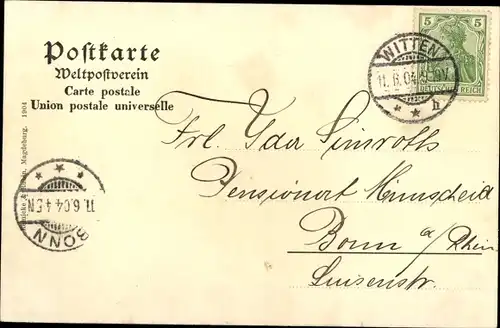 Postkarte
Weltpostverein
Carte postale
Union postale universelle
5 5
DEUTSCHES REICH
WITTEN
11.6.04
* * h
Frl. Ida Simroth
Pensionat
Bonn a/Rhein
Luisenstr.
Magdeburg. 1904
11.6.04 4-5N
BONN